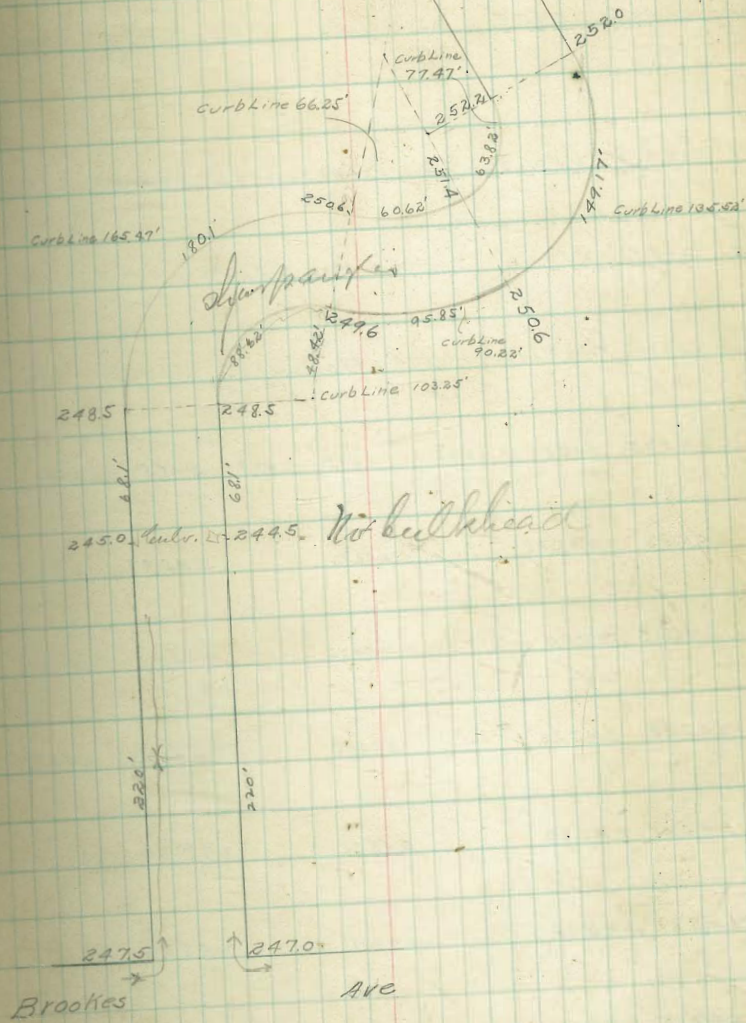 252.0
Curb Line
77.47'
252.2
Curb Line 66.25'
251.4
63.82'
149.17'
250.6
60.62'
Curb Line 135.52'
Curb Line 165.47'
180.1
249.6
95.85'
250.6
Curb Line
90.22'
88.42'
48.42'
Curb Line 103.25'
248.5
248.5
68.1'
68.1'
245.0
244.5
Not bulkhead
220'
220'
247.5
247.0
Brookes
Ave